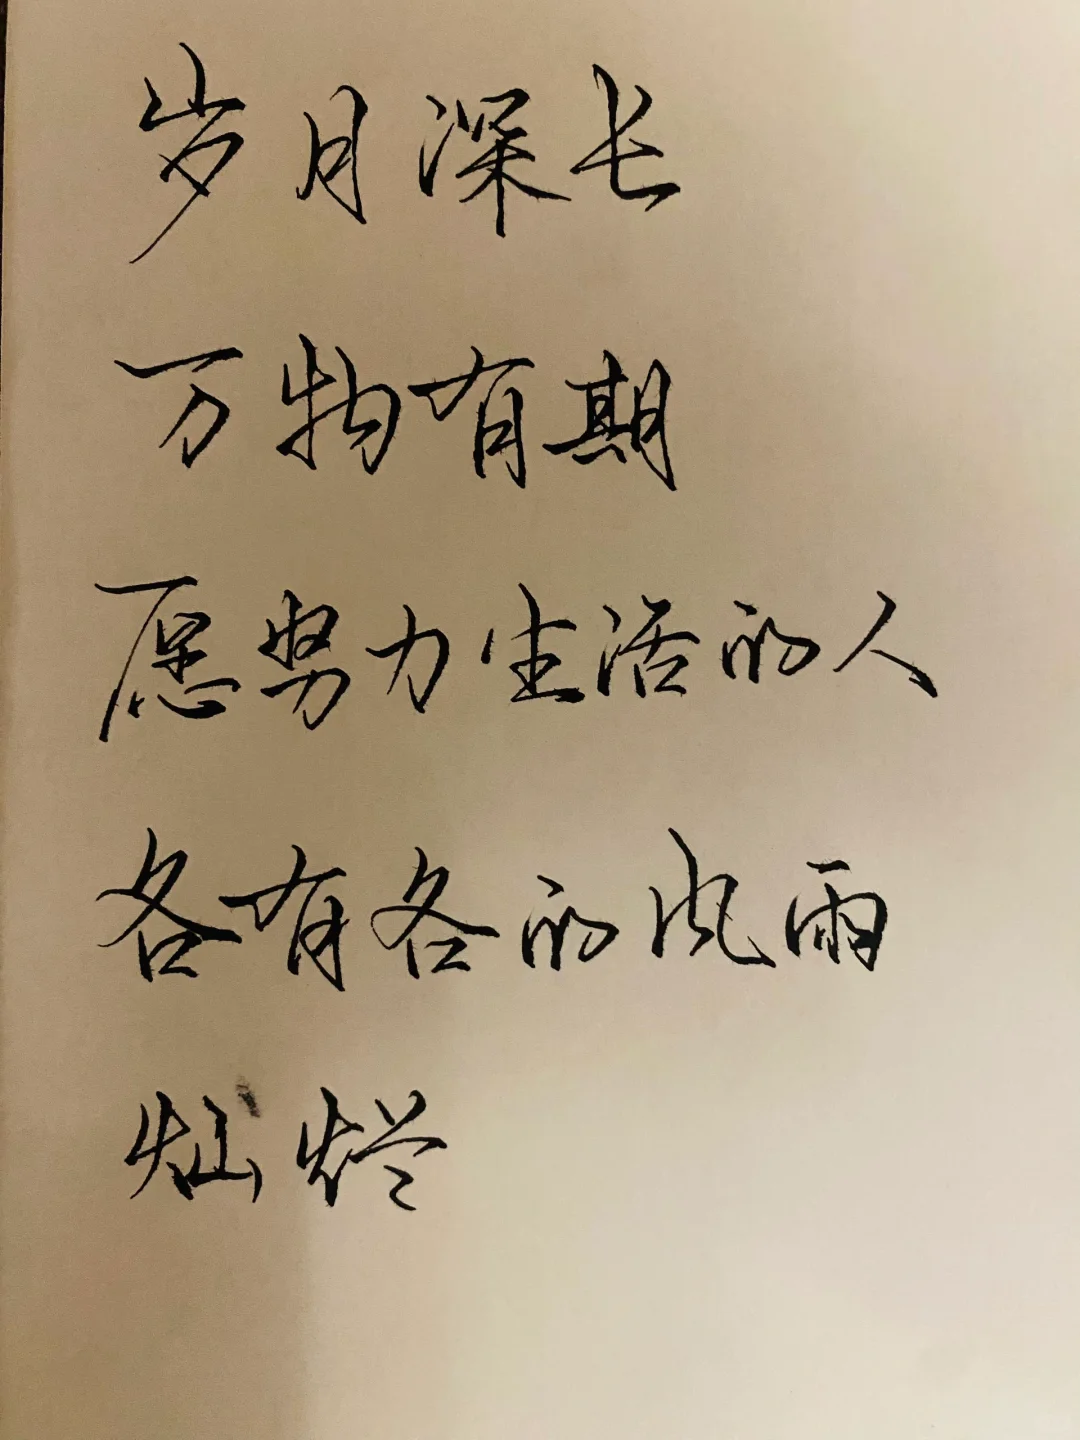 岁月深长
万物有期
愿努力生活的人
各有各的风雨
灿烂